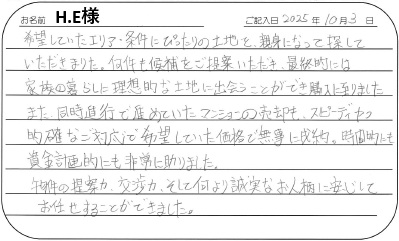 お名前 H.E様 ご記入日 2025年10月3日
希望していたエリア・条件にぴったりの土地を、親身になって探して
いただきました。何件も候補をご提案いただき、最終的には
家族の暮らしに理想的な土地に出会うことができ購入に至りました
また、同時進行で進めていたマンションの売却も、スピーディかつ
的確なご対応で希望していた価格で無事に成約。時間的にも
資金計画的にも非常に助りました。
物件の提案力、交渉力、そして何より誠実なお人柄に安心して
お任せすることができました。